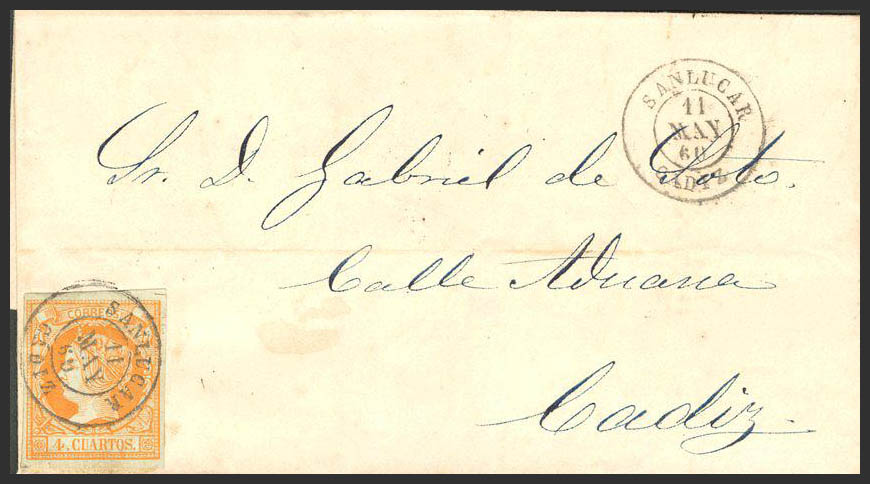 SANLUCAR
11
MAY
60
CADIZ
Sr. D. Gabriel de Soto.
Calle Aduana
Cadiz.
CORREOS
SANLUCAR
11
MAY
60
CADIZ
4 CUARTOS.